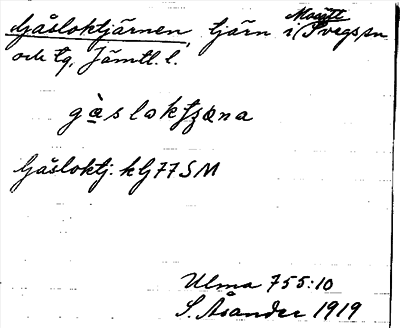 Gåsloktjärnen tjärn i (Mosätt) Svegs sn
och tg, Jämtl. l.
gåslokʃʒæna
Gåsloktj: klj 77 SM
Ulma 755:10
S. Åsander 1919